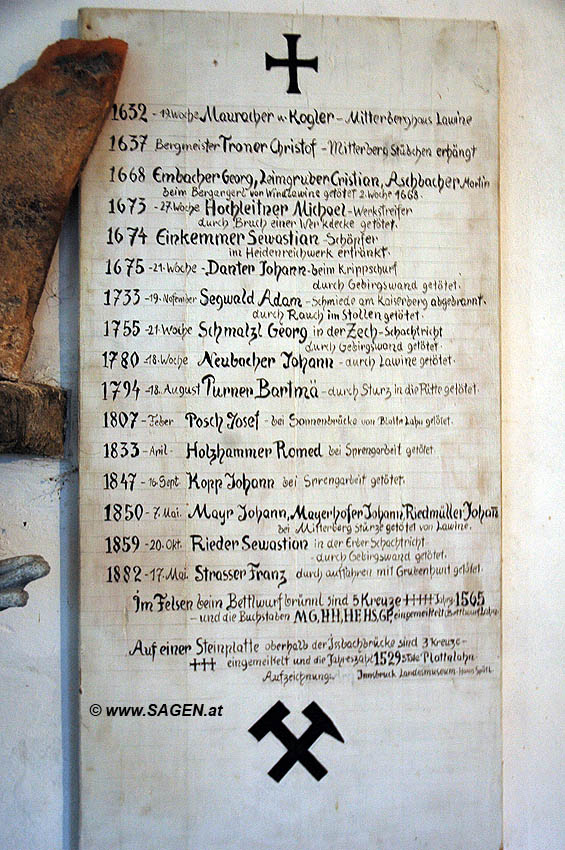 1632 - 19. Woche Mauracher u. Kogler - Mitterberghaus Lawine
1637 Bergmeister Troner Christof - Mitterberg Stübchen erhängt
1668 Embacher Georg, Leimgruber Cristian, Aschbacher Martin
beim Bergangerl von Windlawine getötet 2. Woche 1668.
1673 - 27. Woche Hochleitner Michael - Werkstreifer
durch Bruch einer Werkdecke getötet.
1674 Einkemmer Sewastian - Schöpfer
im Heidenreichwerk ertrunkt.
1675 - 21. Woche - Danter Johann - beim Krippschurf
durch Gebirgswand getötet.
1733 - 19. November Segwald Adam - Schmiede am Kaiserberg abgebrannt.
durch Rauch im Stollen getötet.
1755 - 21. Woche Schmalzl Georg in der Zech - Schachtricht
durch Gebirgswand getötet.
1780 - 18. Woche Neubacher Johann - durch Lawine getötet.
1794 - 18. August Purner Bartmä - durch Sturz in die Pütte getötet.
1807 - Feber Posch Josef - bei Sonnenbrücke von Blatte Lahn getötet.
1833 - April - Holzhammer Romed bei Sprengarbeit getötet.
1847 - 16. Sept Kopp Johann bei Sprengarbeit getötet.
1850 - 7. Mai. Mayr Johann, Mayerhofer Johann, Riedmüller Johann
bei Mitterberg Stürze getötet von Lawine.
1859 - 20. Okt. Rieder Sewastian in der Erber Schachtricht
- durch Gebirgswand getötet.
1882 - 17. Mai Strasser Franz durch auffahren mit Grubenhunt getötet.
Im Felsen beim Bettlwurfbrünnl sind 5 Kreuze +++++ Jahrz. 1565
- und die Buchstaben MG, HH, HE, HS, GP, eingemeißelt Bettlwurf Lahn.
Auf einer Steinplatte oberhalb der Isbachbrücke sind 3 Kreuze -
+++ eingemeißelt und die Jahreszahl 1529 Plattnlahn
Aufzeichnung. Innsbruck Landesmuseum
© www.SAGEN.at